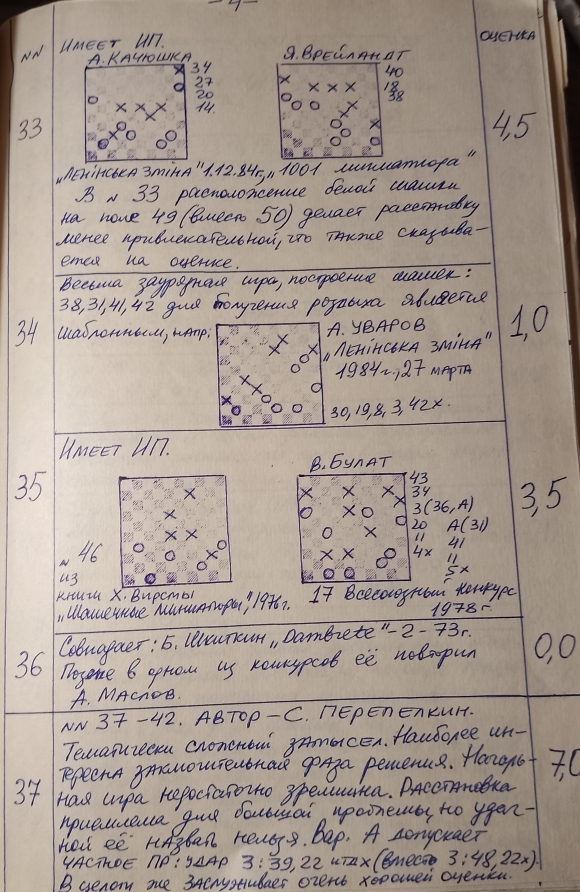 -4-
NN
ИМЕЕТ ИП.
ОЦЕНКА
А. КАЧЮШКА
Я. ВРЕЙЛАНДТ
34
27
20
14.
40
18
38
33
4,5
„ЛЕНIНСЬКА ЗМIНА" 1.12.84г, „1001 миниатюра"
В N 33 расположение белой шашки
на поле 49 (вместо 50) делает расстановку
менее привлекательной, что также сказыва-
ется на оценке.
Весьма заурядная игра, построение шашек:
38,31,41,42 для получения роздыха является
34
шаблонным, напр.
А. УВАРОВ
1,0
„ЛЕНIНСЬКА ЗМIНА"
1984г., 27 МАРТА
30,19,8,3,42х.
ИМЕЕТ ИП.
В. БУЛАТ
35
3,5
43
34
3(36,А)
20 А(31)
11 41
4х 11
5х
N 46
ИЗ
книги Х. Вирсмы
„Шашечные Миниатюры", 1976г.
17 Всесоюзный конкурс
1978г
36
Совпадает: Б. Шкиткин „Dambrete"-2-73г.
0,0
Позже в одном из конкурсов её повторил
А. МАСЛОВ.
NN 37-42. АВТОР-С. ПЕРЕПЕЛКИН.
37
7,0
Тематически сложный замысел. Наиболее ин-
тересна заключительная фаза решения. Началь-
ная игра недостаточно зрелищна. Расстановка
приемлема для большой проблемы, но удач-
ной её назвать нельзя. Вар. А допускает
ЧАСТНОЕ ПР: УДАР 3:39,22 итдх (вместо 3:48,22х).
В целом же заслуживает очень хорошей оценки.